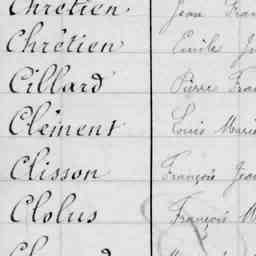 Chrétien Jean Fran
Chrétien Emile
Cillard Pierre Fran
Clément Louis Marie
Clisson François Jean
Clolus François M